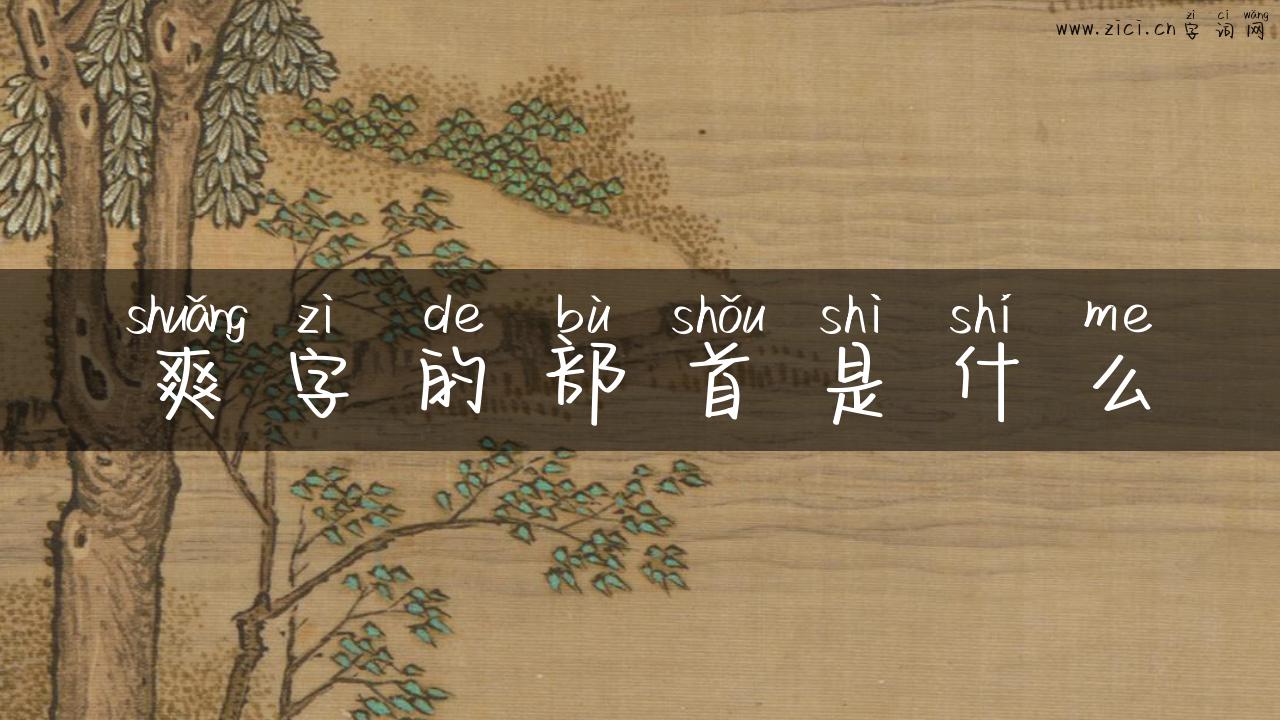 zì cí wǎng
www.zici.cn 字词网
shuǎng zì de bù shǒu shì shí me
爽字的部首是什么